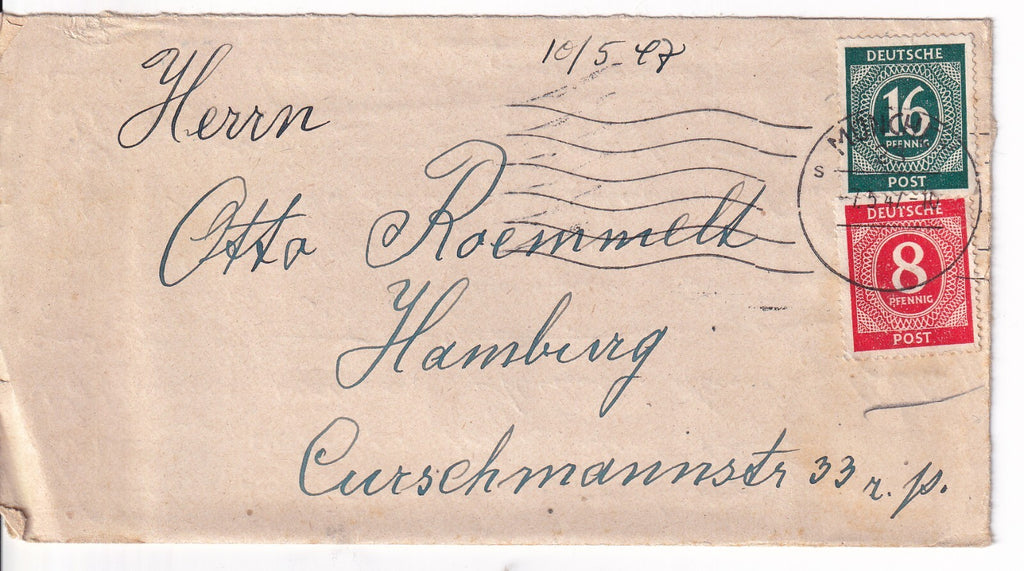 10/5 47
Herrn
Otto Roemmelt
Hamburg
Curschmannstr 33 r. p.
DEUTSCHE
16
PFENNIG
POST
S
DEUTSCHE
8
PFENNIG
POST